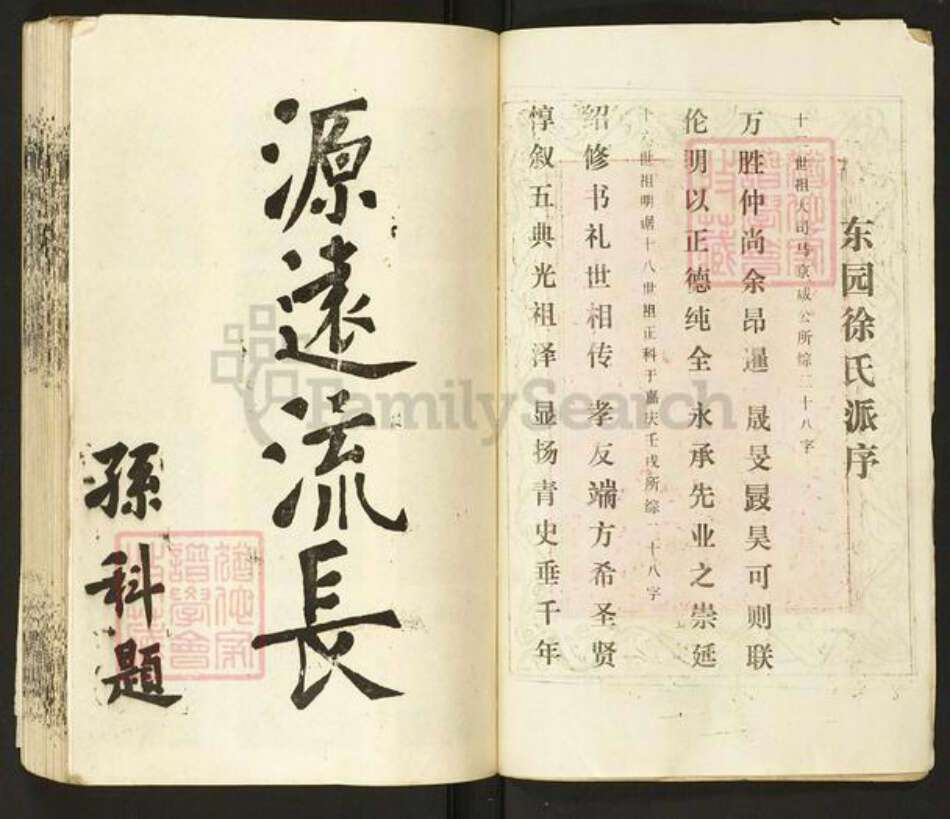 东园徐氏派序
十二世祖大司马京咸公所综二十八字
万胜仲尚余昂暹 晟旻晸昊可则联
伦明以正德纯全 永承先业之崇延
世祖明 十八世祖正科于嘉庆壬戌所综二十八字
绍修书礼世相传 孝友端方希圣贤
惇叙五典光祖泽 显扬青史垂千年
源遠流長
孫科題
FamilySearch